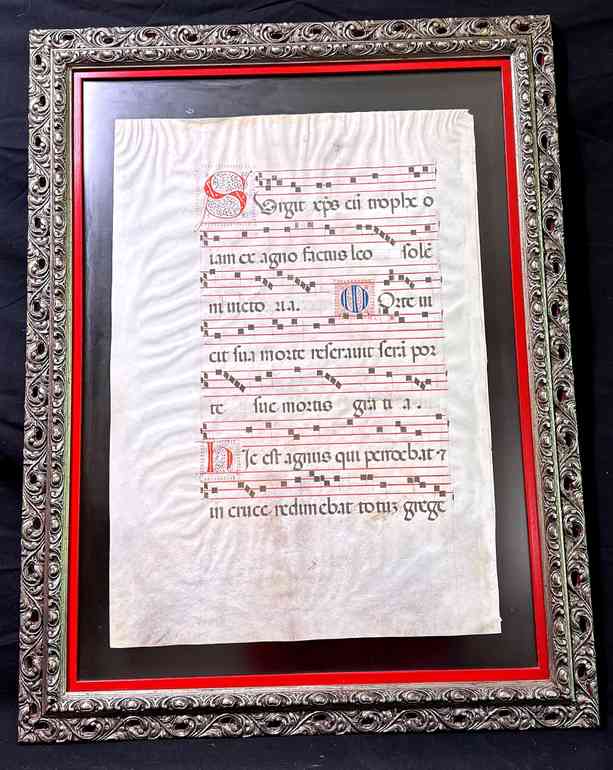 Surgit xp̄s cū trophe o
iam ex agno factus leo solē
ni victo ria. Morte vi
cit sua morte reseravit seri por
te sue mortis gra ti a.
Hic est agnus qui pendebat ⁊
in cruce redimebat totuz grege